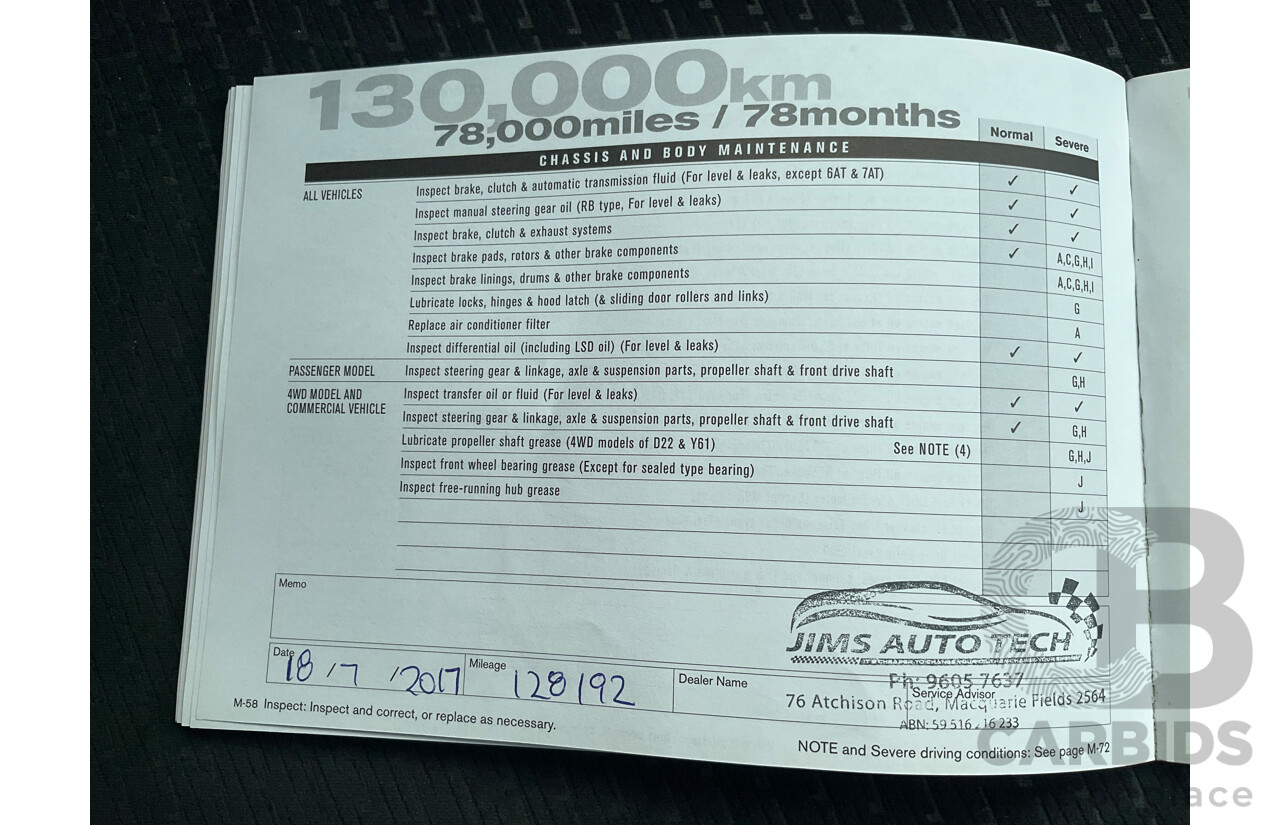 130,000km
78,000miles / 78months
Normal Severe
CHASSIS AND BODY MAINTENANCE
ALL VEHICLES Inspect brake, clutch & automatic transmission fluid (For level & leaks, except 6AT & 7AT) ✓ ✓
Inspect manual steering gear oil (RB type, For level & leaks) ✓ ✓
Inspect brake, clutch & exhaust systems ✓ ✓
Inspect brake pads, rotors & other brake components ✓ A,C,G,H,I
Inspect brake linings, drums & other brake components A,C,G,H,I
Lubricate locks, hinges & hood latch (& sliding door rollers and links) G
Replace air conditioner filter A
Inspect differential oil (including LSD oil) (For level & leaks) ✓ ✓
PASSENGER MODEL Inspect steering gear & linkage, axle & suspension parts, propeller shaft & front drive shaft G,H
4WD MODEL AND Inspect transfer oil or fluid (For level & leaks) ✓ ✓
COMMERCIAL VEHICLE Inspect steering gear & linkage, axle & suspension parts, propeller shaft & front drive shaft ✓ G,H
Lubricate propeller shaft grease (4WD models of D22 & Y61) See NOTE (4) G,H,J
Inspect front wheel bearing grease (Except for sealed type bearing) J
Inspect free-running hub grease J
Memo
JIMS AUTO TECH
Date 18/7/2017 Mileage 128192 Dealer Name
Ph: 9605 7637
Service Advisor
76 Atchison Road, Macquarie Fields 2564
ABN: 59 516 16 233
M-58 Inspect: Inspect and correct, or replace as necessary.
NOTE and Severe driving conditions: See page M-72
CB
CARBIDS
ace